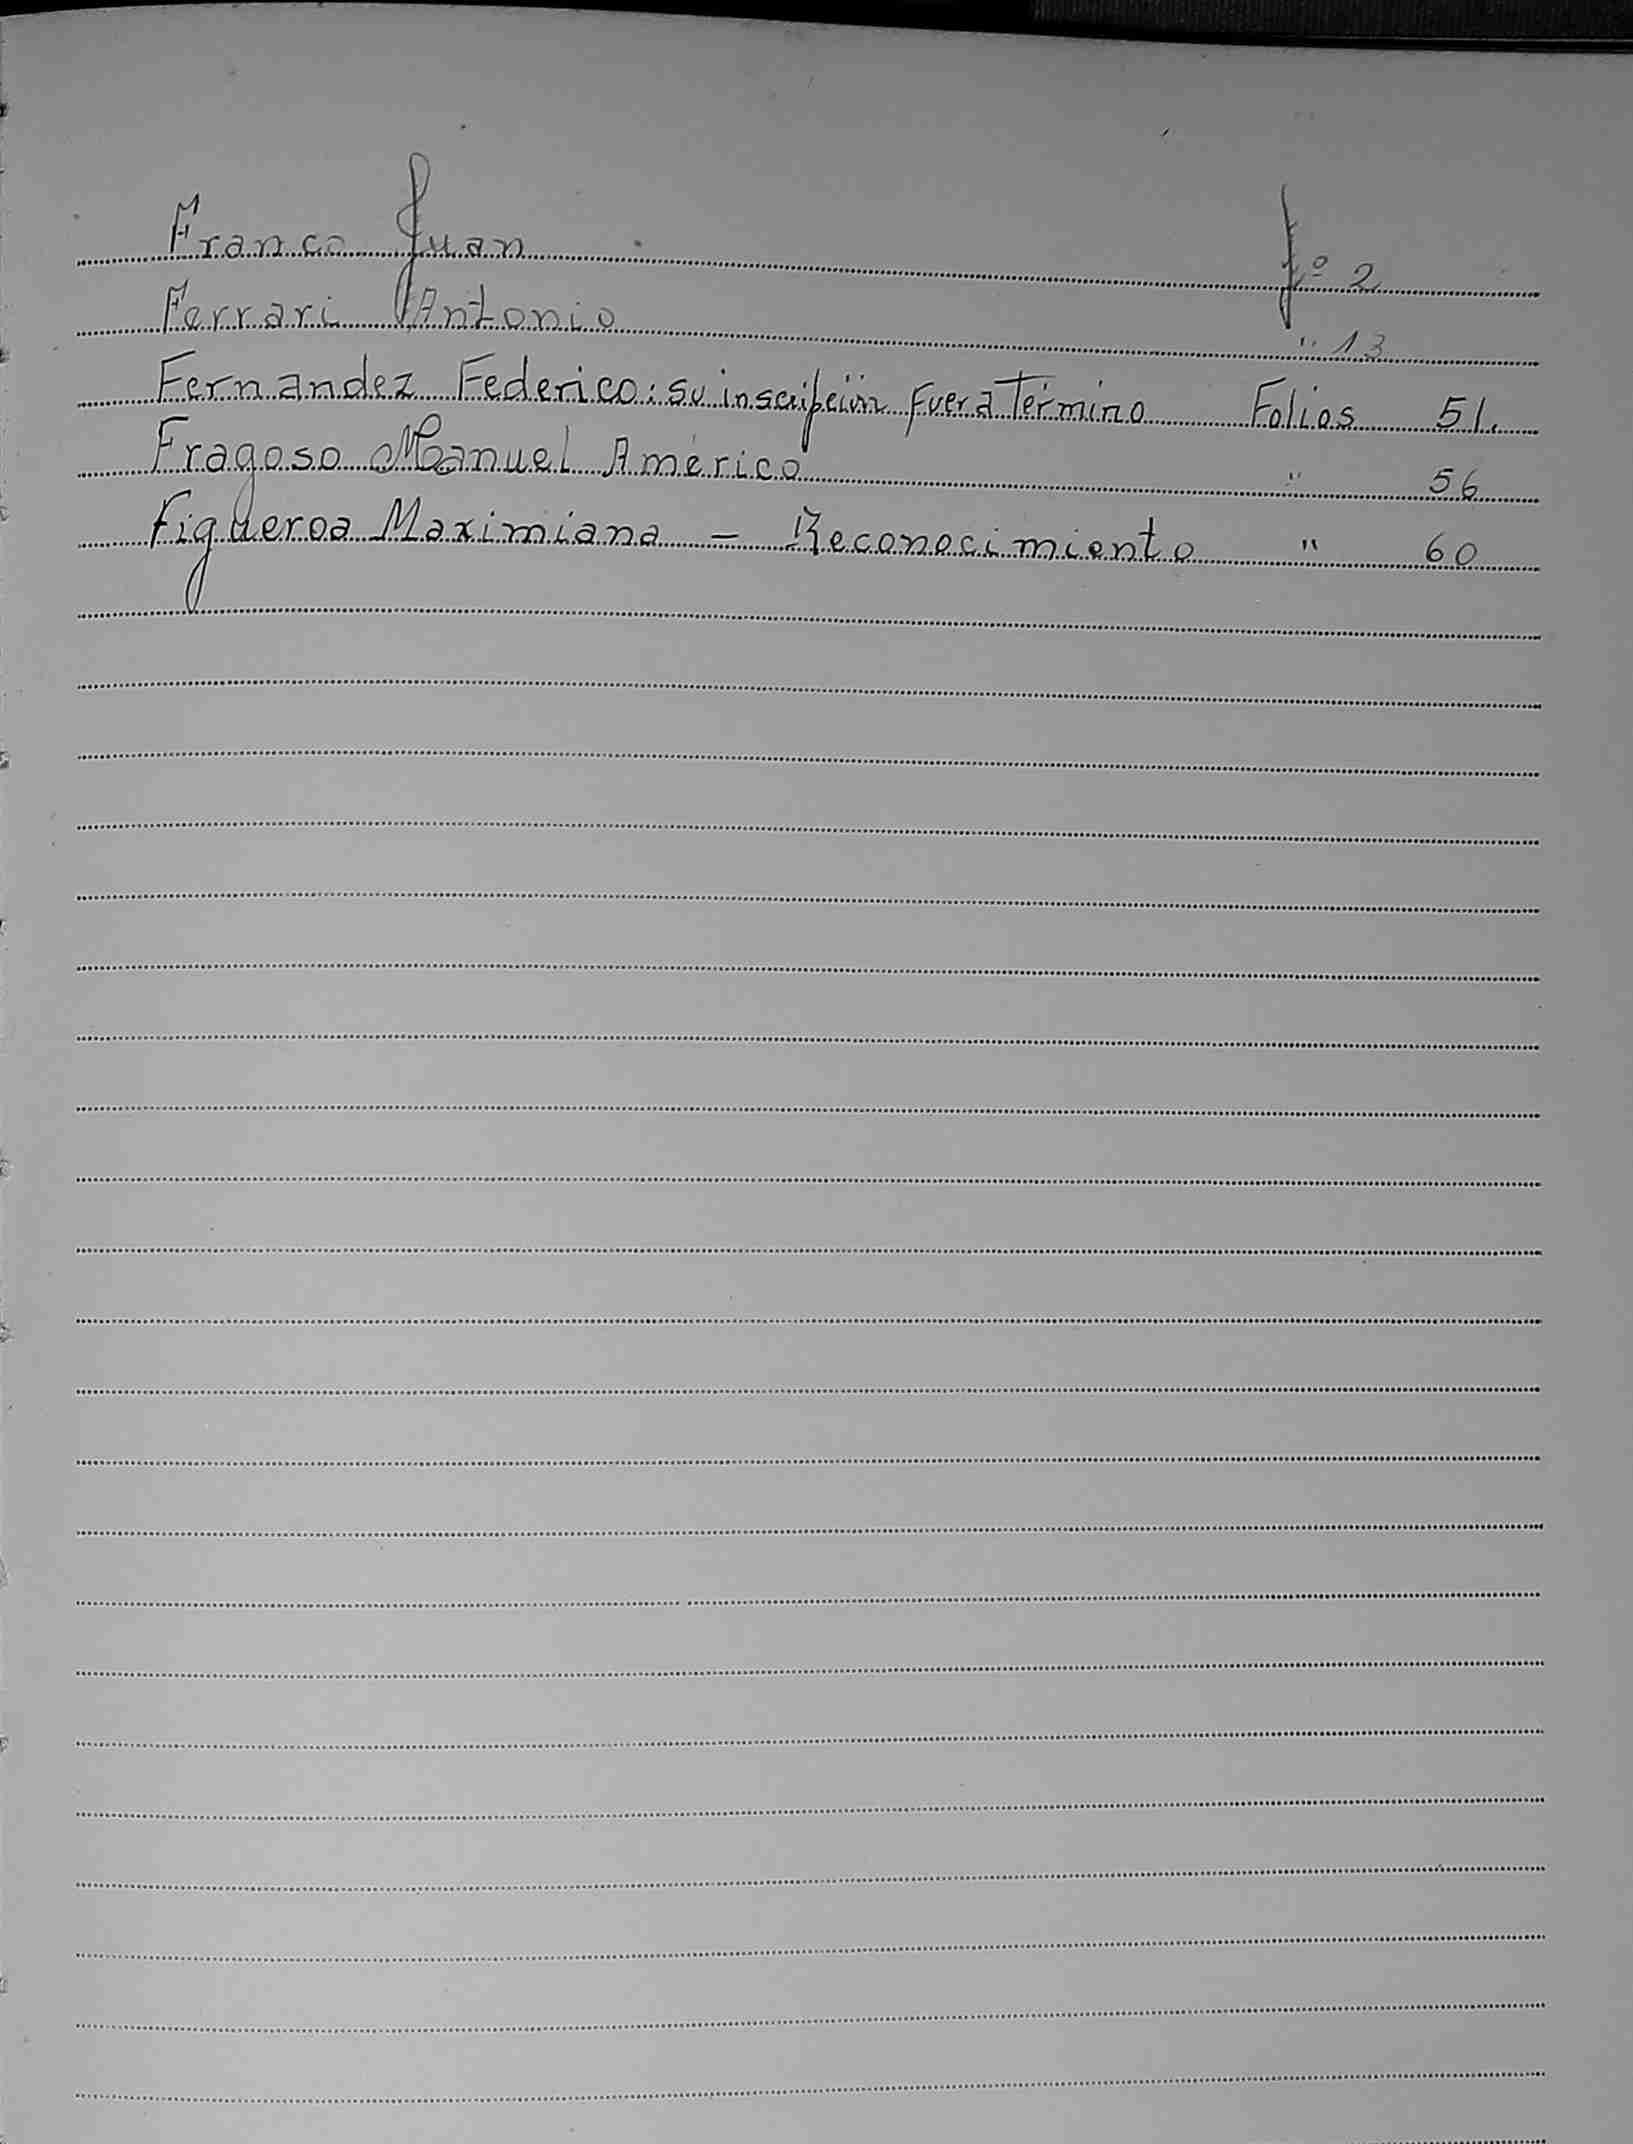 Franco Juan fº 2
Ferrari Antonio " 13
Fernandez Federico: su inscripción Fuera Término Folios 51.
Fragoso Manuel Américo " 56
Figueroa Maximiana = Reconocimiento " 60